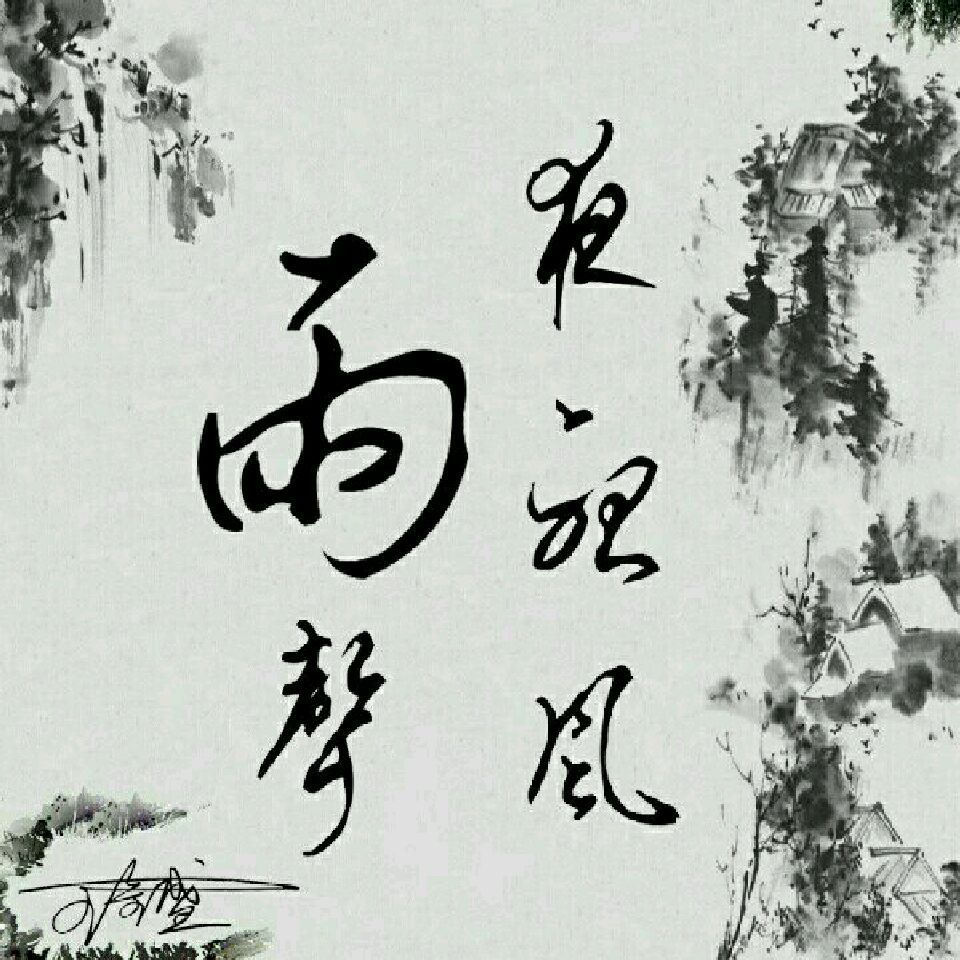 夜裡風
雨聲